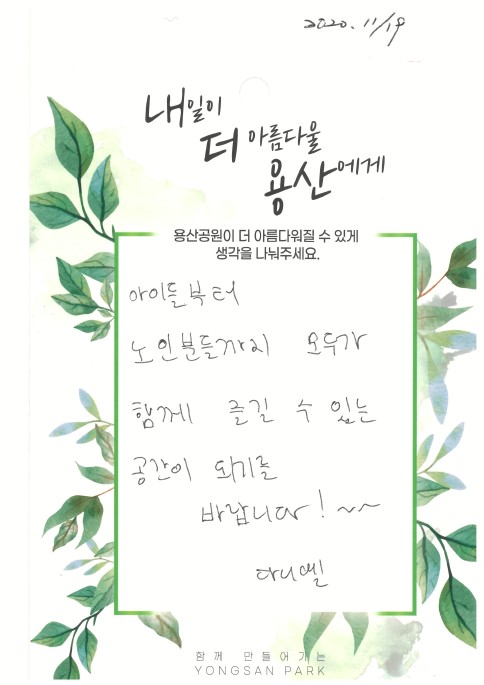 2020. 11/19
내일이
더 아름다울
용산에게
용산공원이 더 아름다워질 수 있게
생각을 나눠주세요.
아이들부터
노인분들까지 모두가
함께 즐길 수 있는
공간이 되기를
바랍니다! ~~
다니엘
함께 만들어가는
YONGSAN PARK